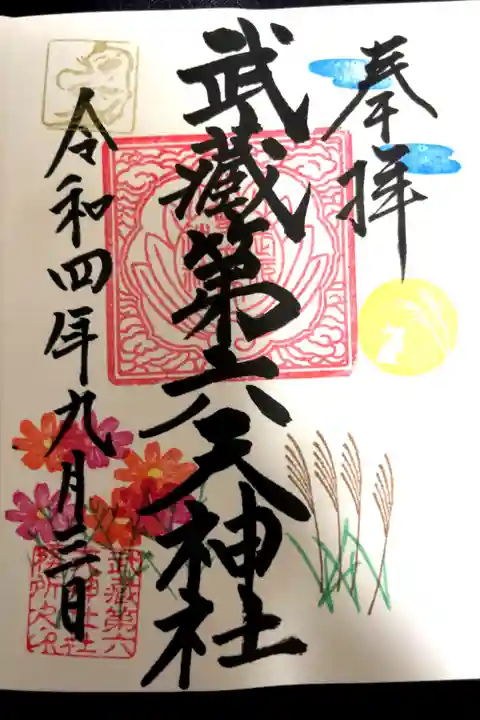 奉拝
武蔵第六天神社
令和四年九月三日
武蔵第六
天神社社
務所之印